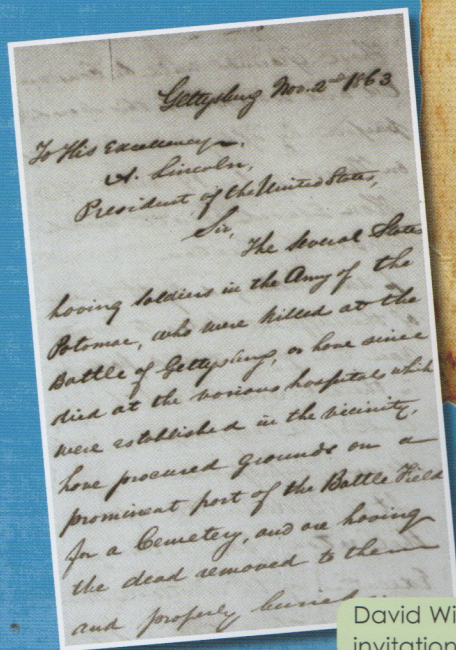 Gettysburg Nov. 2nd 1863
To His Excellency,
A. Lincoln,
President of the United States,
Sir,
The Several States
having soldiers in the Army of the
Potomac, who were killed at the
Battle of Gettysburg, or have since
died at the various hospitals which
were established in the vicinity,
have procured grounds on a
prominent part of the Battle Field
for a Cemetery, and are having
the dead removed to them
and properly buried
David Wi
invitation